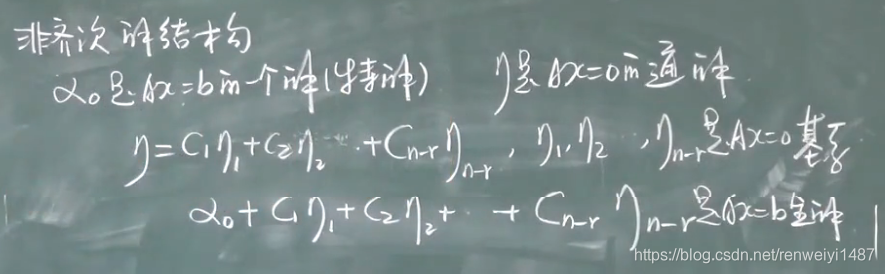 非齐次解结构
α₀是Ax=b的一个解(特解) η是Ax=0的通解.
η=C₁η₁+C₂η₂…+Cₙ₋ᵣηₙ₋ᵣ, η₁,η₂…,ηₙ₋ᵣ是Ax=0基系
α₀+C₁η₁+C₂η₂+…+Cₙ₋ᵣηₙ₋ᵣ是Ax=b全解
https://blog.csdn.net/renweiyi1487